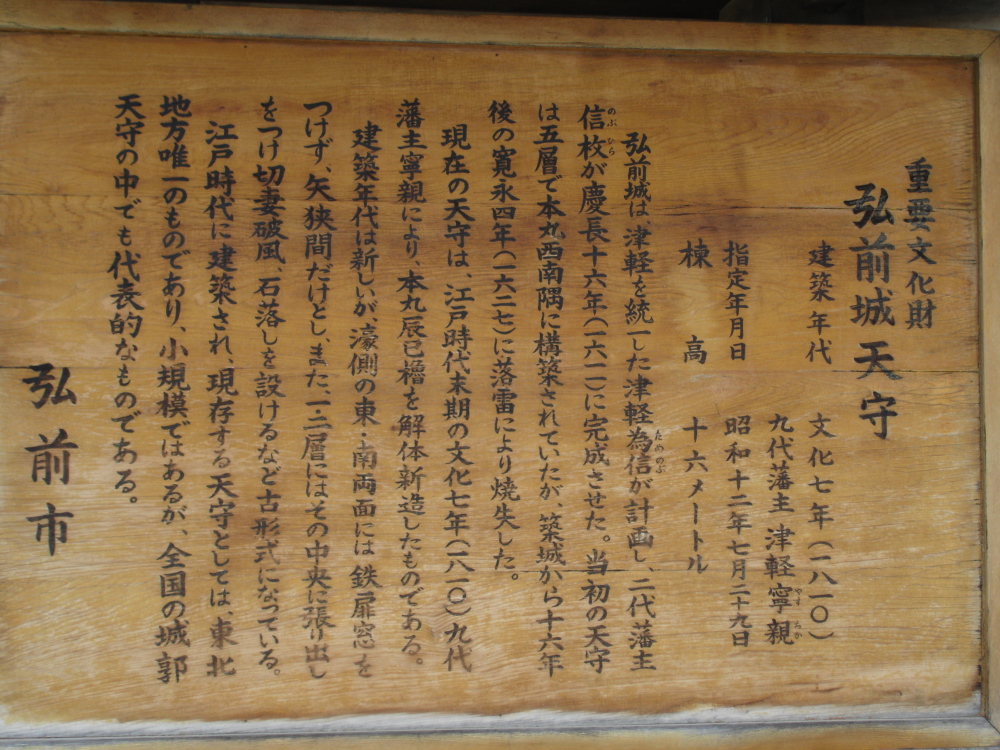 重要文化財
弘前城天守
建築年代 文化七年(一八一〇)
九代藩主 津軽寧親
やす ちか
指定年月日 昭和十二年七月二十九日
棟高 十六メートル
弘前城は、津軽を統一した津軽為信が計画し、二代藩主
ためのぶ
信枚が慶長十六年(一六一一)に完成させた。当初の天守
のぶ ひら
は五層で本丸西南隅に構築されていたが、築城から十六年
後の寛永四年(一六二七)に落雷により焼失した。
現在の天守は、江戸時代末期の文化七年(一八一〇)九代
藩主寧親により、本丸辰巳櫓を解体新造したものである。
建築年代は新しいが、濠側の東・南両面には鉄扉窓を
つけず、矢狭間だけとし、また、一・二層にはその中央に張り出し
をつけ切妻破風、石落しを設けるなど古形式になっている。
江戸時代に建築され、現存する天守としては、東北
地方唯一のものであり、小規模ではあるが、全国の城郭
天守の中でも代表的なものである。
弘前市